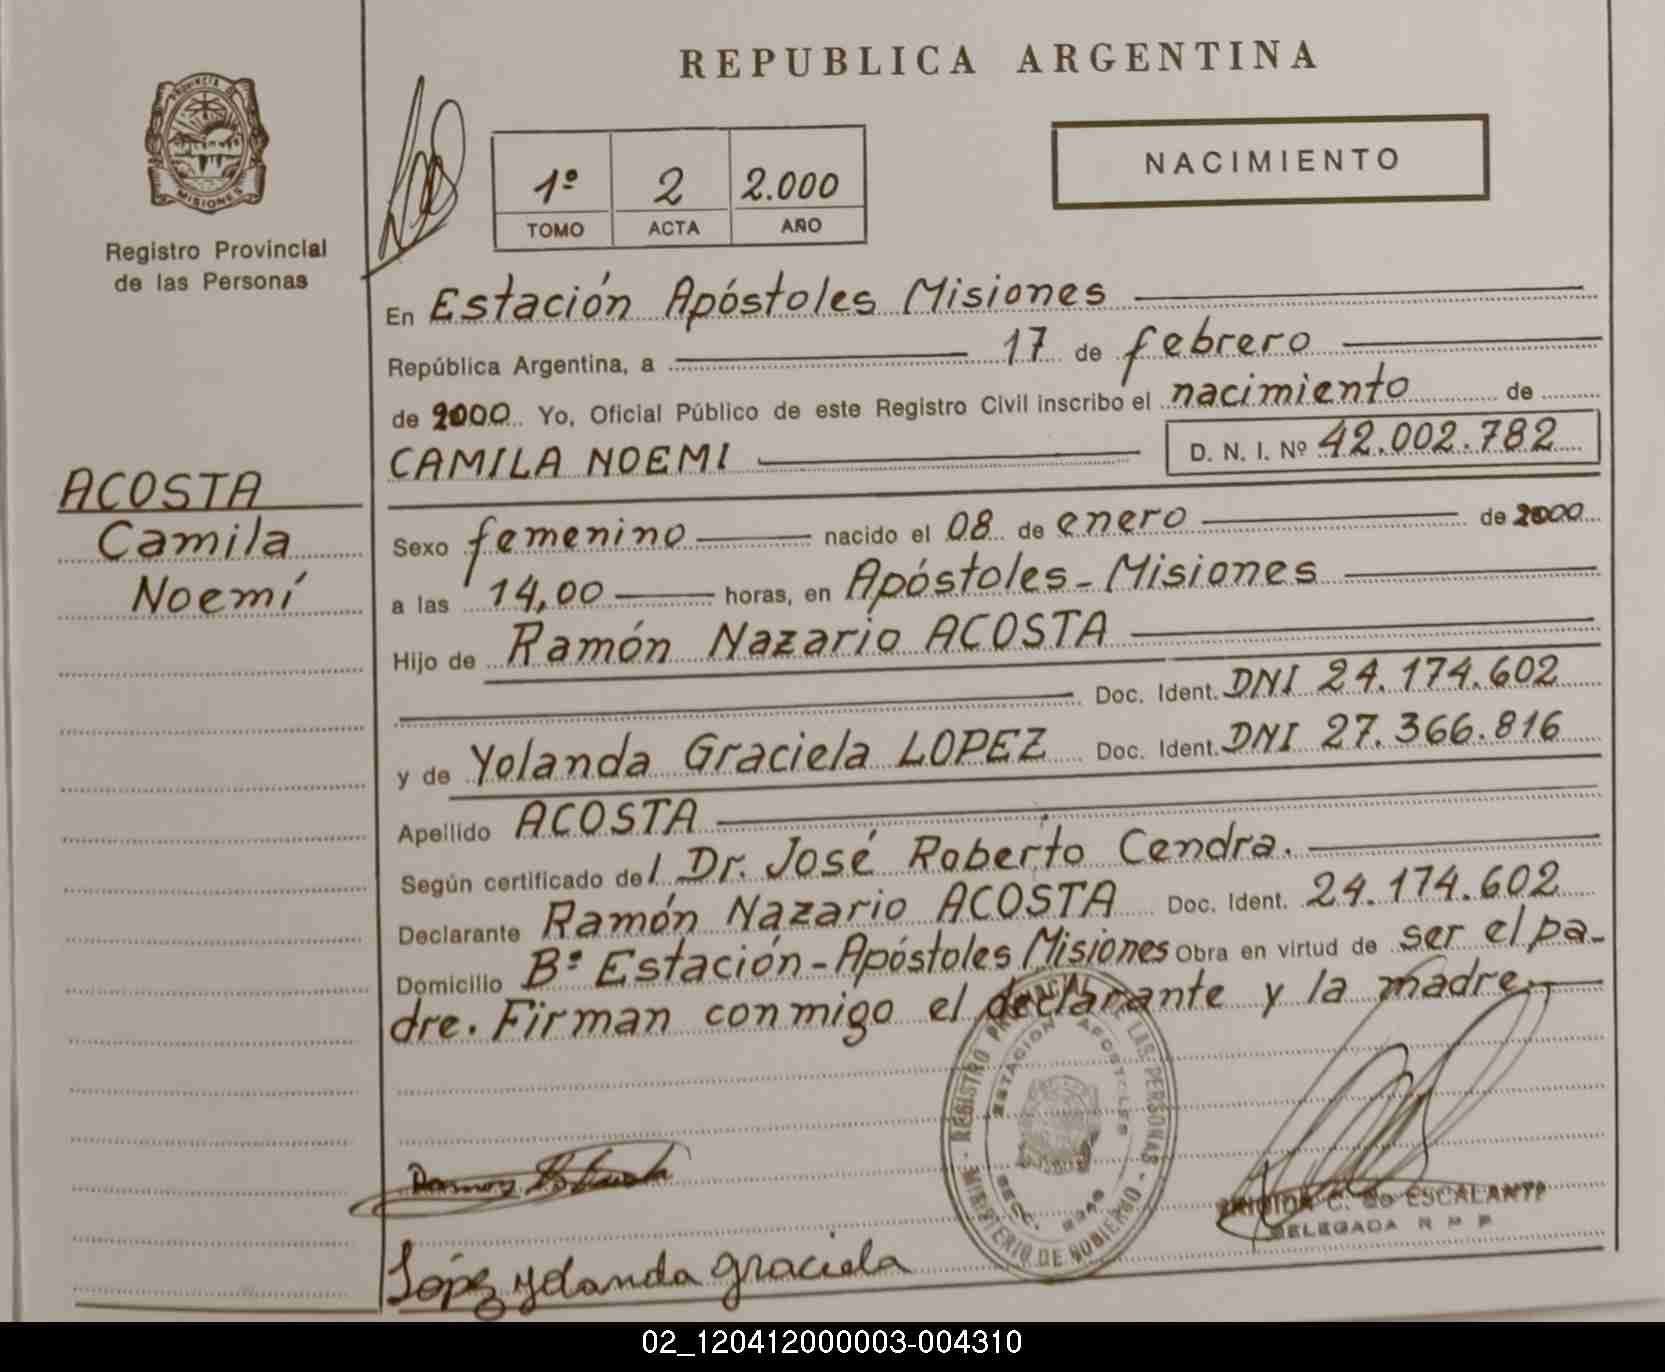 REPUBLICA ARGENTINA
PROVINCIA DE
MISIONES
Registro Provincial
de las Personas
1º 2 2.000
TOMO ACTA AÑO
NACIMIENTO
En Estación Apóstoles Misiones
República Argentina, a 17 de febrero
de 2000 Yo, Oficial Público de este Registro Civil inscribo el nacimiento de
CAMILA NOEMI D. N. I. Nº 42.002.782
ACOSTA
Camila
Noemí
Sexo femenino nacido el 08 de enero de 2000
a las 14,00 horas, en Apóstoles - Misiones
Hijo de Ramón Nazario ACOSTA
Doc. Ident. DNI 24.174.602
y de Yolanda Graciela LOPEZ Doc. Ident. DNI 27.366.816
Apellido ACOSTA
Según certificado del Dr. José Roberto Cendra.
Declarante Ramón Nazario ACOSTA Doc. Ident. 24.174.602
Domicilio Bº Estación - Apóstoles Misiones Obra en virtud de ser el pa-
dre. Firman conmigo el declarante y la madre.
REGISTRO PROVINCIAL DE LAS PERSONAS
ESTACION APOSTOLES
MINISTERIO DE GOBIERNO
C. de ESCALANTE
DELEGADA R P P
López yolanda graciela
02_120412000003-004310